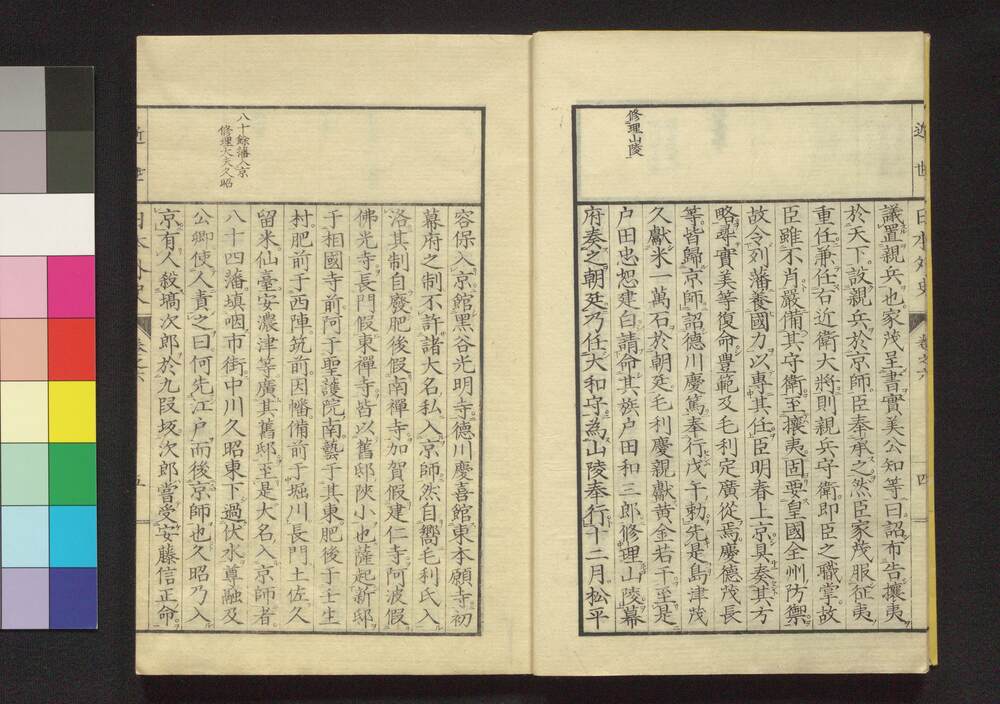 近世日本外史 卷之六 四
修理山陵
議置親兵也家茂呈書實美公知等曰詔布告攘夷
於天下設親兵於京師臣奉承之然臣家茂服征夷
重任兼任右近衛大將則親兵守衛即臣之職掌故
臣雖不肖嚴備其守衛至攘夷固要皇國全州防禦
故令列藩養國力以專其任臣明春上京具奏其方
略尋實美等復命豊範及毛利定廣從焉慶德茂長
等皆歸京師詔德川慶篤奉行戊午勅先是島津茂
久獻米一萬石於朝廷毛利慶親獻黄金若干至是
戸田忠恕建白請命其族戸田和三郎修理山陵幕
府奏之朝廷乃任大和守為山陵奉行十二月松平
容保入京館黒谷光明寺德川慶喜館東本願寺初
幕府之制不許諸大名私入京師然自嚮毛利氏入
洛其制自廢肥後假南禪寺加賀假建仁寺阿波假
佛光寺長門假東禪寺皆以舊邸陜小也薩起新邸
于相國寺前阿于聖護院南藝于其東肥後于壬生
村肥前于西陣筑前因幡備前于堀川長門土佐久
留米仙臺安濃津等廣其舊邸至是大名入京師者
八十餘藩入京
修理大夫久昭
八十四藩填咽市街中川久昭東下過伏水尊融及
公卿使人責之曰何先江戸而後京師也久昭乃入
京有人殺塙次郎於九段坂次郎嘗受安藤信正命
近世日本外史 卷之六 五